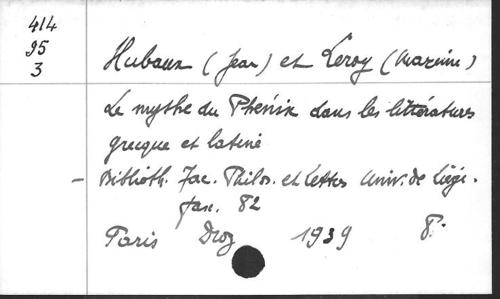 414
95
3
Hubaux (Jean) et Leroy (Maxime)
Le mythe du Phénix dans les littératures
grecque et latine
- Biblioth. Fac. Philos. et Lettres Univ. de Liège.
fasc. 82
Paris Droz 1939 8°